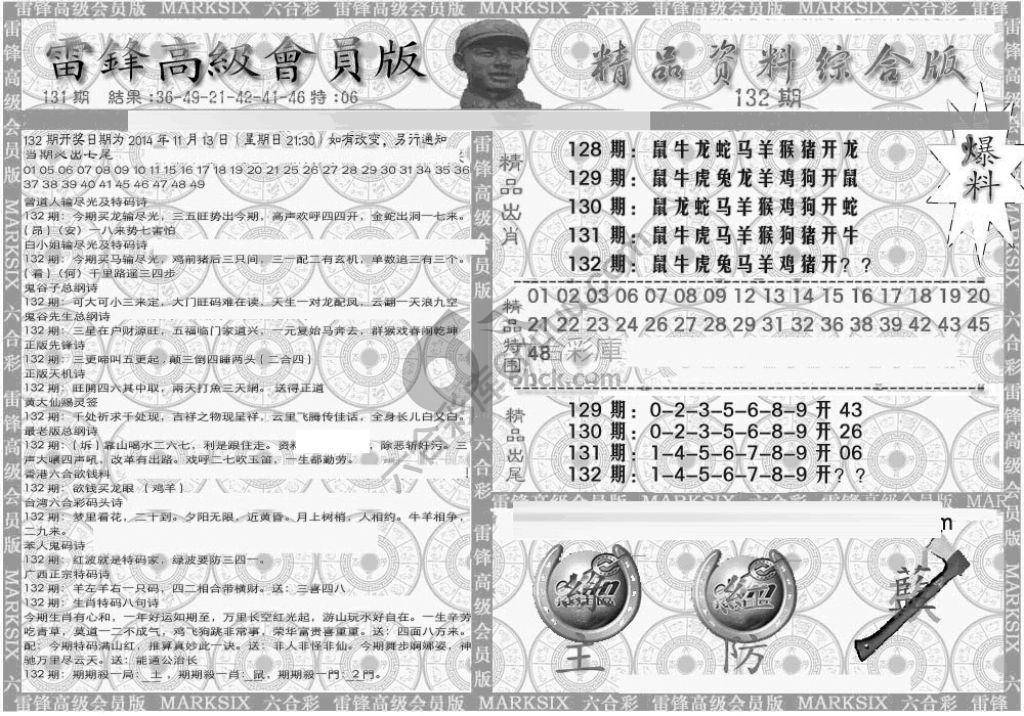 雷锋高级会员版 MARKSIX 六合彩 雷锋高级会员版 MARKSIX 六合彩 雷锋高级会员版 MARKSIX 六合彩 雷锋
雷鋒高級會員版
精品資料綜合版
131期 結果:36-49-21-42-41-46特:06
132期
132期开奖日期为2014年11月13日(星期日21:30)如有改变,另行通知
01 05 06 07 08 09 10 11 15 16 17 18 19 20 21 25 26 27 28 29 30 31 34 35 36
37 38 39 40 41 45 46 47 48 49
曾道人输尽光及特码诗
132期:今期买龙输尽光,三五旺势出今期,高声欢呼四四开,金蛇出洞一七来。
(昂)(安)一八来势七害怕
白小姐输尽光及特码诗
132期:今期买马输尽光,鸡前猪后三只间,三一配二有玄机,单数追三有三个。
(看)(何)千里路遥三四步
鬼谷子总纲诗
132期:可大可小三来定,大门旺码难在读、天生一对龙配凤,云翻一天浪九空
鬼谷先生总纲诗
132期:三星在户财源旺,五福临门家道兴,一元复始马奔去,群猴戏春闹乾坤
正版先锋诗
132期:三更啼叫五更起,颠三倒四睡两头(二合四)
正版天机诗
132期:旺開四六其中取,兩天打魚三天網。送得正道
黄大仙赐灵签
132期:千处祈求千处现,吉祥之物现呈祥,云里飞腾传佳话,全身长儿白又白。
最老版总纲诗
132期:(坼)靠山喝水二六七,利是跟住走。资料 ,除恶斩奸污。三
声大嚷四声吼,改革有出路。戏呼二七吹玉笛,一生都勤劳。
香港六合欲钱料
132期:欲钱买龙眼 (鸡羊)
台湾六合彩码头诗
132期:梦里看花,三十到。夕阳无限,近黄昏。月上树梢,人相约。牛羊相争,
二九来。
本人鬼码诗
132期:红波就是特码家,绿波要防三四一。
广西正宗特码诗
132期:羊左羊右一只码,四二相合带横财。送:三喜四八
132期:生肖特码八句诗
今期生肖有心和,一年好运如期至,万里长空红光起,游山玩水好自在。一生辛劳
吃青草,莫道一二不成气,鸡飞狗跳非常事,荣华富贵喜重重。送:四面八方来。
配:今期特码满山红,推算真妙此一诀。送:非人非怪非仙。今期舞步婀娜姿,神
驰万里尽云天。送:能通公治长
132期:期期殺一局:土,期期殺一肖:鼠,期期殺一門:2門。
精品出肖
128期:鼠牛龙蛇马羊猴猪开龙
129期:鼠牛虎兔龙羊鸡狗开鼠
130期:鼠龙蛇马羊猴鸡狗开蛇
131期:鼠牛虎马羊猴狗猪开牛
132期:鼠牛虎兔马羊鸡猪开??
爆料
精品特围
01 02 03 06 07 08 09 12 13 14 15 16 17 18 19 20
21 22 23 24 26 27 28 29 31 32 36 38 39 42 43 45
48
精品出尾
129期:0-2-3-5-6-8-9开43
130期:0-2-3-5-6-8-9开26
131期:1-4-5-6-7-8-9开06
132期:1-4-5-6-7-8-9开??
m
主
防
雷锋高级会员版 MARKSIX 六合彩 雷锋高级会员版 MARKSIX 六合彩 雷锋高级会员版 MARKSIX 六合彩 雷锋